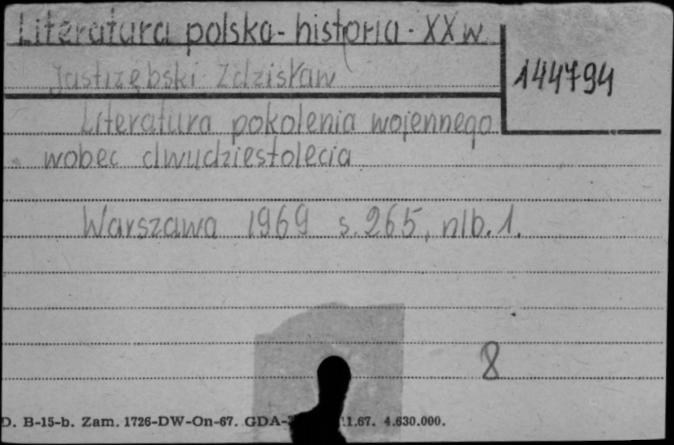 Literatura polska - historia - XX w.
Jastrzębski Zdzisław
144794
Literatura pokolenia wojennego
wobec dwudziestolecia
Warszawa 1969 s. 265, nlb. 1.
8
D. B-15-b. Zam. 1726-DW-On-67. GDA- 1.67. 4.630.000.